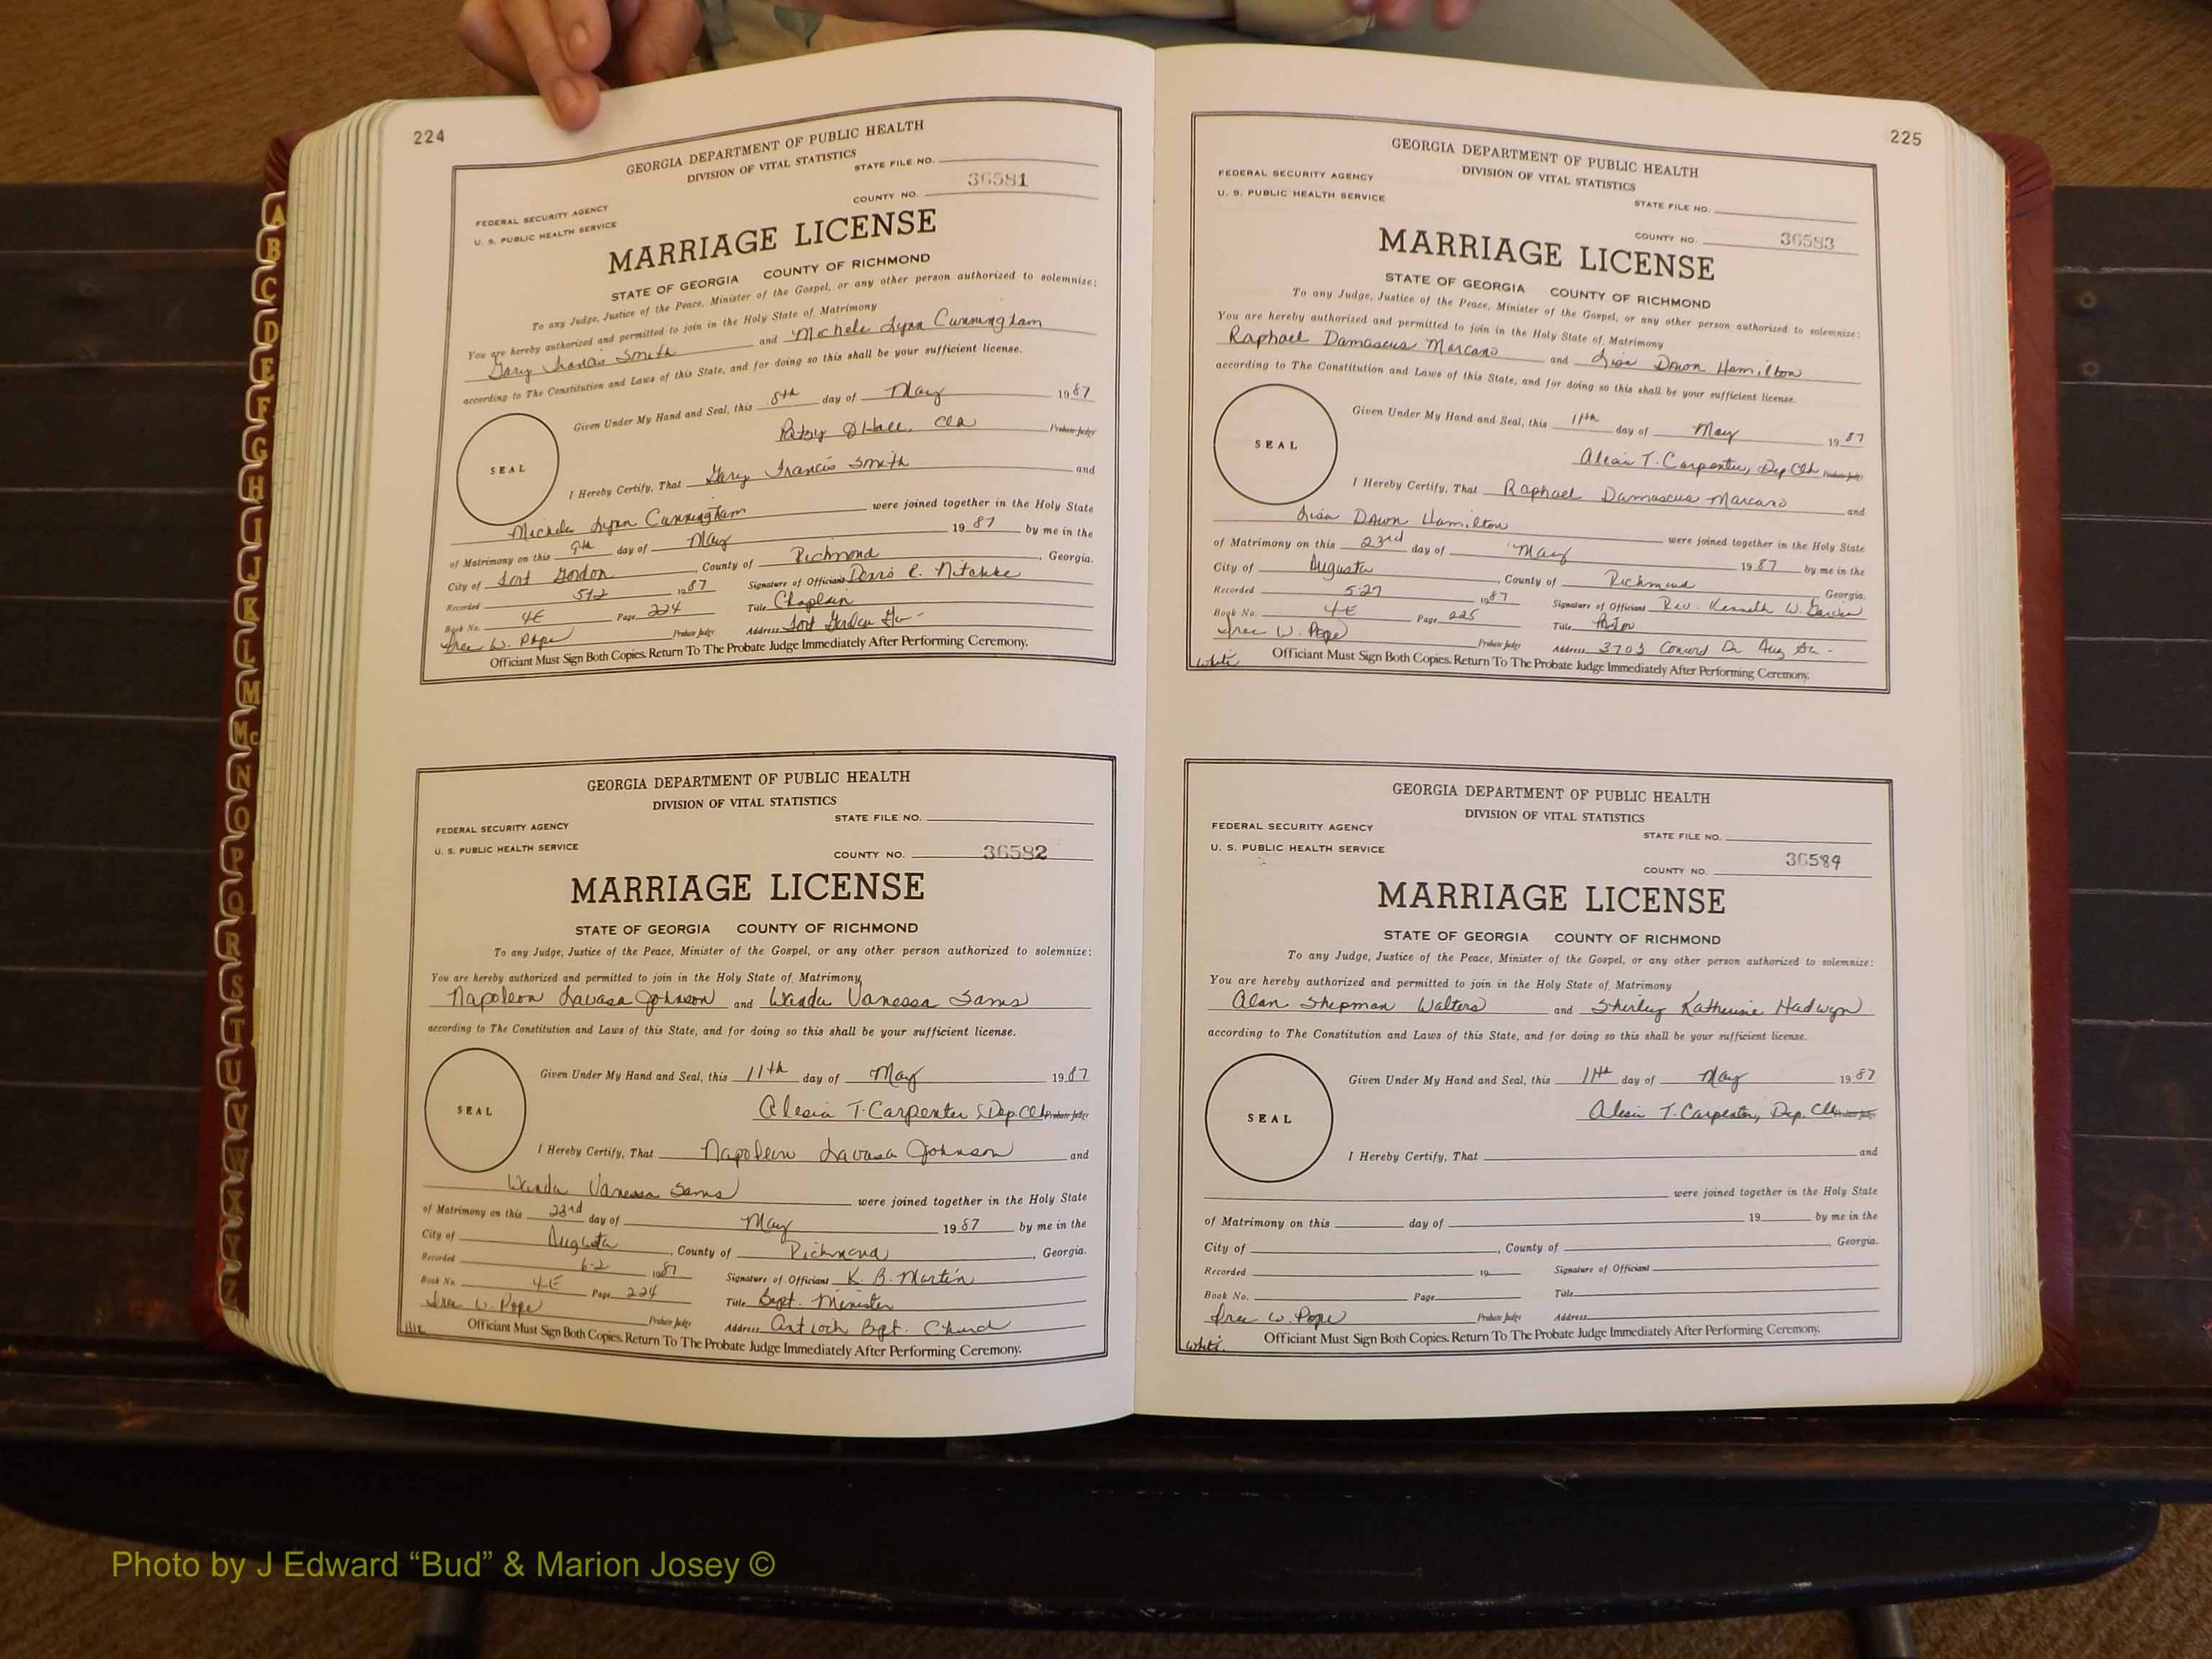 224
GEORGIA DEPARTMENT OF PUBLIC HEALTH
DIVISION OF VITAL STATISTICS
STATE FILE NO.
FEDERAL SECURITY AGENCY
U. S. PUBLIC HEALTH SERVICE
COUNTY NO. 36581
MARRIAGE LICENSE
STATE OF GEORGIA COUNTY OF RICHMOND
To any Judge, Justice of the Peace, Minister of the Gospel, or any other person authorized to solemnize:
You are hereby authorized and permitted to join in the Holy State of Matrimony
Gary Francis Smith and Michele Lynn Cunningham
according to The Constitution and Laws of this State, and for doing so this shall be your sufficient license.
Given Under My Hand and Seal, this 8th day of May 1987
Probate Judge
SEAL
I Hereby Certify, That Gary Francis Smith and
Michele Lynn Cunningham were joined together in the Holy State
of Matrimony on this 9th day of May 1987 by me in the
City of Fort Gordon, County of Richmond, Georgia.
Recorded 1987 Signature of Officiant
Book No. 4E Page 224 Title Chaplain
W. Pope Probate Judge Address Fort Gordon Ga
Officiant Must Sign Both Copies. Return To The Probate Judge Immediately After Performing Ceremony.
GEORGIA DEPARTMENT OF PUBLIC HEALTH
DIVISION OF VITAL STATISTICS
STATE FILE NO.
FEDERAL SECURITY AGENCY
U. S. PUBLIC HEALTH SERVICE
COUNTY NO. 36582
MARRIAGE LICENSE
STATE OF GEORGIA COUNTY OF RICHMOND
To any Judge, Justice of the Peace, Minister of the Gospel, or any other person authorized to solemnize:
You are hereby authorized and permitted to join in the Holy State of Matrimony
Napoleon Lavasa Johnson and Wanda Vanessa Sams
according to The Constitution and Laws of this State, and for doing so this shall be your sufficient license.
Given Under My Hand and Seal, this 11th day of May 1987
Alesia T. Carpenter, Dep. Clk Probate Judge
SEAL
I Hereby Certify, That Napoleon Lavasa Johnson and
Wanda Vanessa Sams were joined together in the Holy State
of Matrimony on this 23rd day of May 1987 by me in the
City of Augusta, County of Richmond, Georgia.
Recorded 6-2 1987 Signature of Officiant K. B. Martin
Book No. 4E Page 224 Title Bapt. Minister
W. Pope Probate Judge Address Antioch Bapt. Church
Officiant Must Sign Both Copies. Return To The Probate Judge Immediately After Performing Ceremony.
225
GEORGIA DEPARTMENT OF PUBLIC HEALTH
DIVISION OF VITAL STATISTICS
FEDERAL SECURITY AGENCY
U. S. PUBLIC HEALTH SERVICE
STATE FILE NO.
COUNTY NO. 36583
MARRIAGE LICENSE
STATE OF GEORGIA COUNTY OF RICHMOND
To any Judge, Justice of the Peace, Minister of the Gospel, or any other person authorized to solemnize:
You are hereby authorized and permitted to join in the Holy State of Matrimony
Raphael Damascus Marcano and Lisa Dawn Hamilton
according to The Constitution and Laws of this State, and for doing so this shall be your sufficient license.
Given Under My Hand and Seal, this 11th day of May 1987
Alesia T. Carpenter, Dep Clk Probate Judge
SEAL
I Hereby Certify, That Raphael Damascus Marcano and
Lisa Dawn Hamilton were joined together in the Holy State
of Matrimony on this 23rd day of May 1987 by me in the
City of Augusta, County of Richmond Georgia.
Recorded 5-27 1987 Signature of Officiant Rev. Kenneth W.
Book No. 4E Page 225 Title Pastor
W. Pope Probate Judge Address 3703 Dr Aug Ga -
White Officiant Must Sign Both Copies. Return To The Probate Judge Immediately After Performing Ceremony.
GEORGIA DEPARTMENT OF PUBLIC HEALTH
DIVISION OF VITAL STATISTICS
FEDERAL SECURITY AGENCY
STATE FILE NO.
U. S. PUBLIC HEALTH SERVICE
COUNTY NO. 36584
MARRIAGE LICENSE
STATE OF GEORGIA COUNTY OF RICHMOND
To any Judge, Justice of the Peace, Minister of the Gospel, or any other person authorized to solemnize:
You are hereby authorized and permitted to join in the Holy State of Matrimony
Alan Shepman Walters and Shirley Katherine Hadwyn
according to The Constitution and Laws of this State, and for doing so this shall be your sufficient license.
Given Under My Hand and Seal, this 11th day of May 1987
Alesia T. Carpenter, Dep. Clk Probate Judge
SEAL
I Hereby Certify, That and
were joined together in the Holy State
of Matrimony on this day of 19 by me in the
City of , County of Georgia.
Recorded 19 Signature of Officiant
Book No. Page Title
W. Pope Probate Judge Address
White Officiant Must Sign Both Copies. Return To The Probate Judge Immediately After Performing Ceremony.
A
B
C
D
E
F
G
H
I
J
K
L
M
Mc
N
O
P
Q
R
S
T
U
V
W
X
Y
Z
Photo by J Edward “Bud” & Marion Josey ©